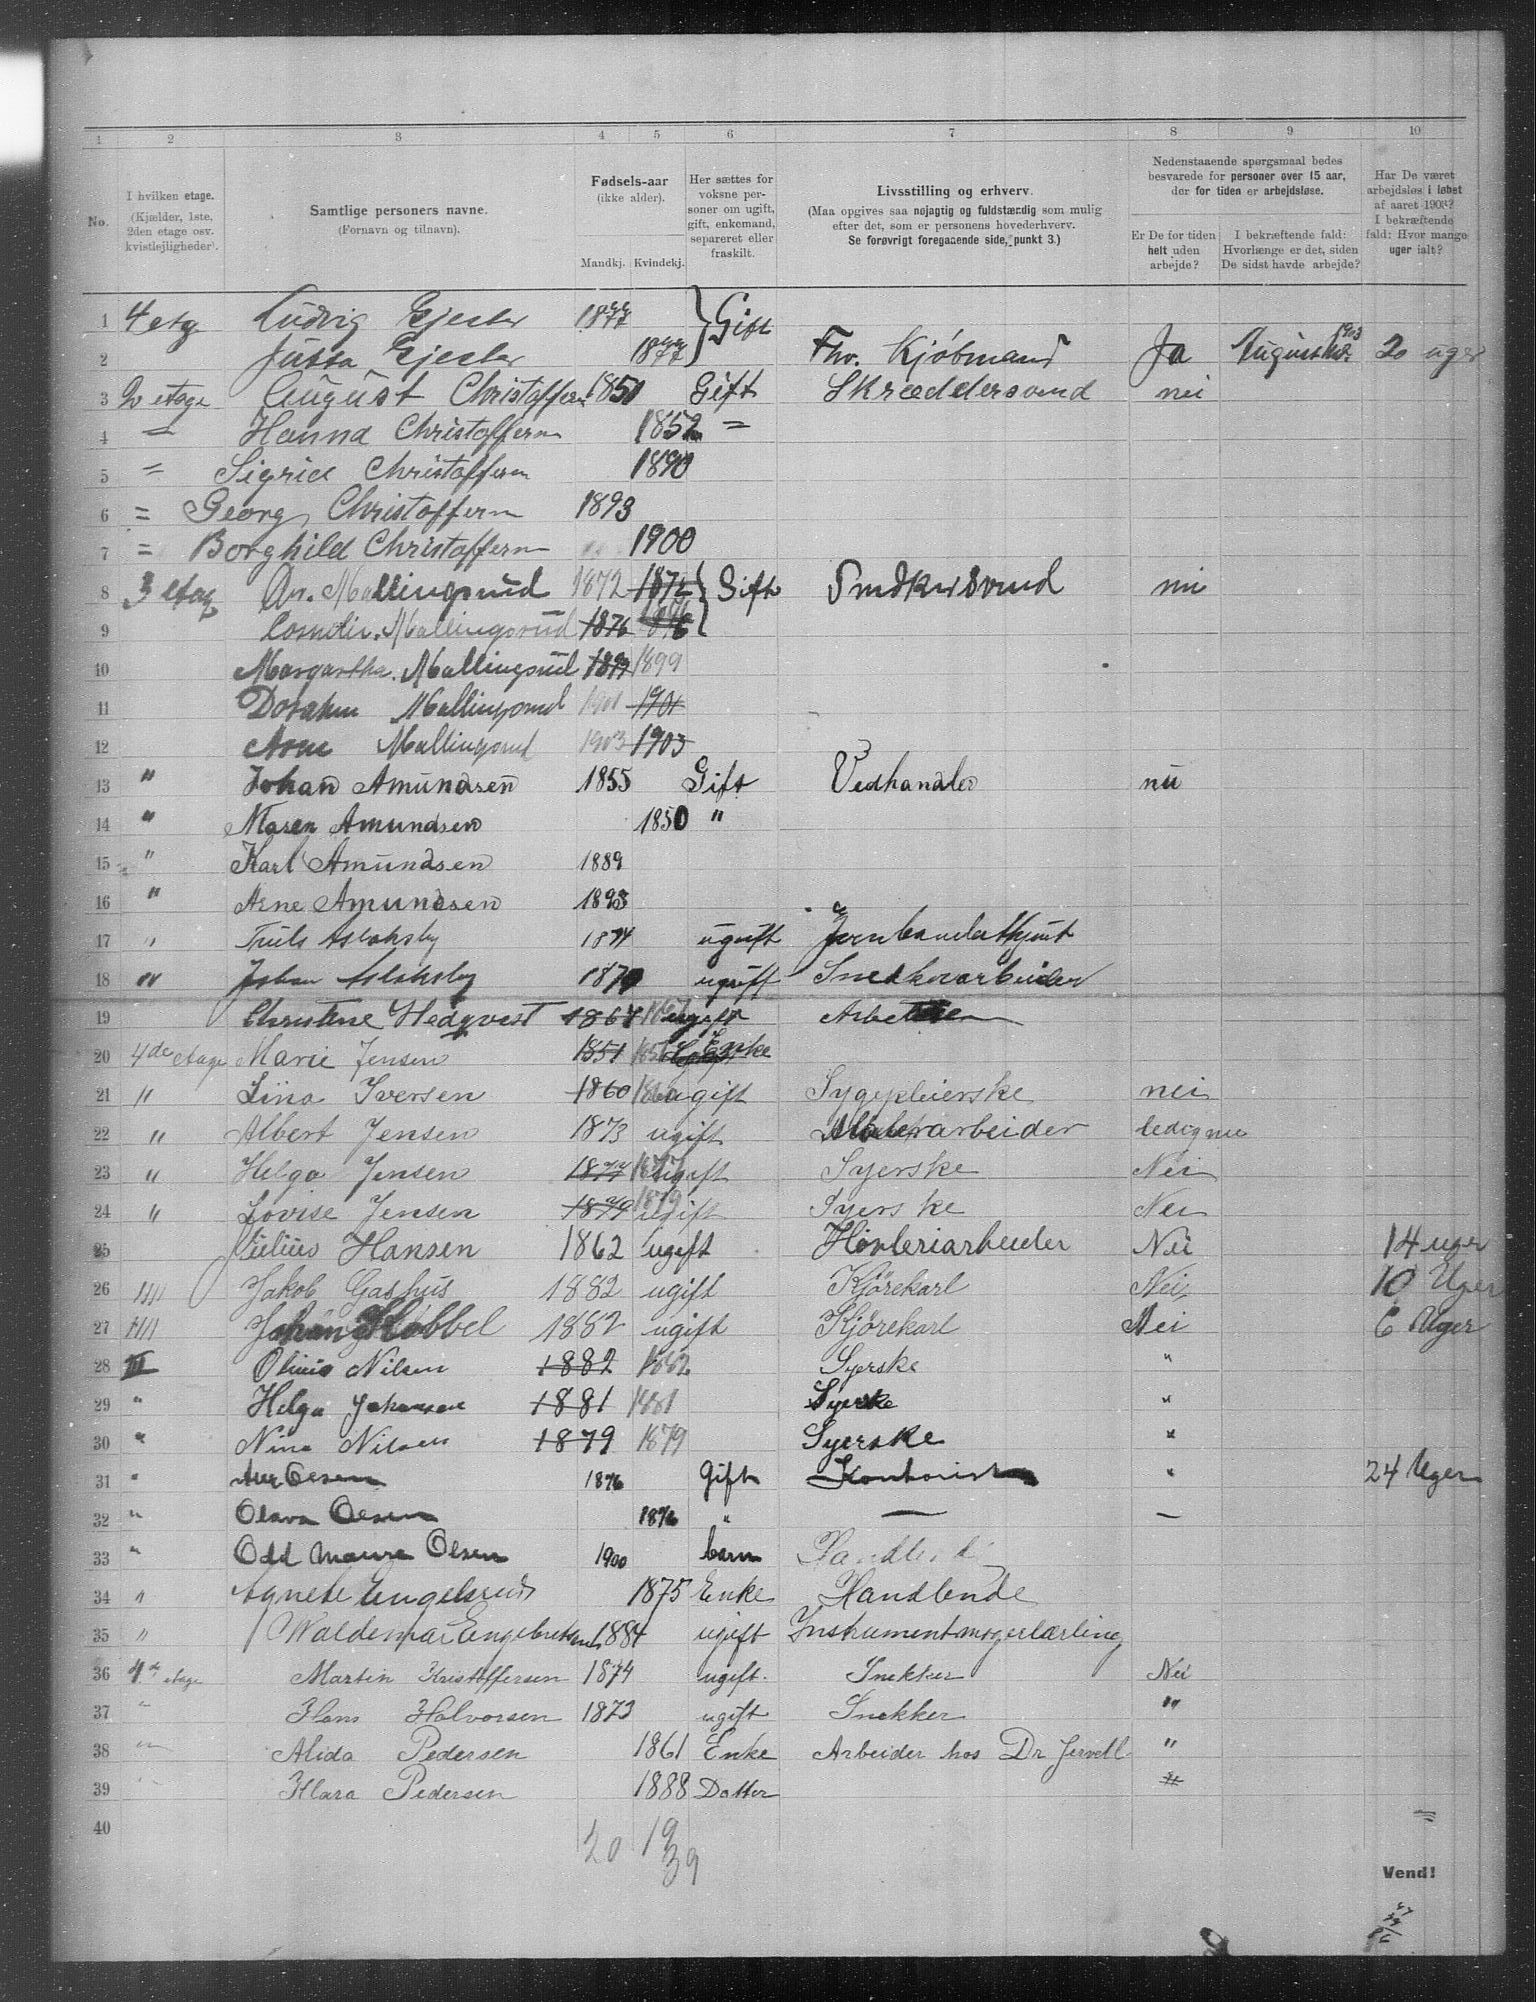 1 2 3 4 5 6 7 8 9 10
No. I hvilken etage. (Kjælder, 1ste, 2den etage osv. kvistlejligheder). Samtlige personers navne. (Fornavn og tilnavn). Fødsels-aar (ikke alder). Mandkj. Kvindekj. Her sættes for voksne personer om ugift, gift, enkemand, separeret eller fraskilt. Livsstilling og erhverv. (Maa opgives saa nøjagtig og fuldstændig som mulig efter det, som er personens hovederhverv. Se forøvrigt foregaaende side, punkt 3.) Nedenstaaende spørgsmaal bedes besvarede for personer over 15 aar, der for tiden er arbejdsløse. Er De for tiden helt uden arbejde? I bekræftende fald: Hvorlænge er det, siden De sidst havde arbejde? Har De været arbejdsløs i løbet af aaret 1903? I bekræftende fald: Hvor mange uger ialt?
1 4 etg Ludvig Ejester 1877 Gift
2 Ejester 1877 Fhv. Kjøbmand Ja August 1903 20 uger
3 2 etage August Christoffersen 1850 Gift Skræddersvend nei
4 = Hanna Christoffersn 1852 =
5 = Sigrid Christoffersn 1890
6 = Georg Christoffersn 1893
7 = Borghild Christoffersn 1900
8 3 etag An. Mallingsrud 1872 1872 Gift Snedkersvend nei
9 Mallingsrud 1876 1876
10 Margaretha. Mallingsrud 1899 1899
11 Mallingsrud 1901 1901
12 Arne Mallingsrud 1903 1903
13 " Johan Amundsen 1855 Gift Vedhandler nei
14 " Maren Amundsen 1850 "
15 " Karl Amundsen 1889
16 " Arne Amundsen 1893
17 " Truls Aslaksby 1874 ugift
18 " Johan Aslaksby 1870 ugift Snedkerarbeider
19 Christine Hedqvist 1867 1867 ugift
20 4de etage Marie Jensen 1851 1851 Enke
21 " Lina Iversen 1860 1860 ugift Sygepleierske nei
22 " Albert Jensen 1873 ugift Malerarbeider ledig nu
23 " Helga Jensen 1877 1877 ugift Syerske Nei
24 " Lovise Jensen 1879 1879 ugift Syerske Nei
25 Julius Hansen 1862 ugift Høvleriarbeider Nei 14 uger
26 "" Jakob Gashus 1882 ugift Kjörekarl Nei 10 Uger
27 "" Johan Høbbel 1882 ugift Kjörekarl Nei 6 Uger
28 III Nilsen 1882 1882 Syerske "
29 " Helga Johansen 1881 1881 Syerske "
30 " Nina Nilsen 1879 1879 Syerske "
31 " Olsen 1876 Gift Kontorist " 24 Uger
32 " Olava Olsen 1876 " — —
33 " Odd Olsen 1900 barn Handlende
34 " Agnete Engelsrud 1875 Enke Handlende
35 " Waldemar Engebretsen 1884 ugift Instrumentmagerlærling
36 4de etage Martin Kristoffersen 1874 ugift. Snekker Nei
37 " Hans Halvorsen 1873 ugift Snekker "
38 " Alida Pedersen 1861 Enke Arbeider hos Dr Jervell "
39 " Klara Pedersen 1888 Datter "
40
20 19
39
Vend!